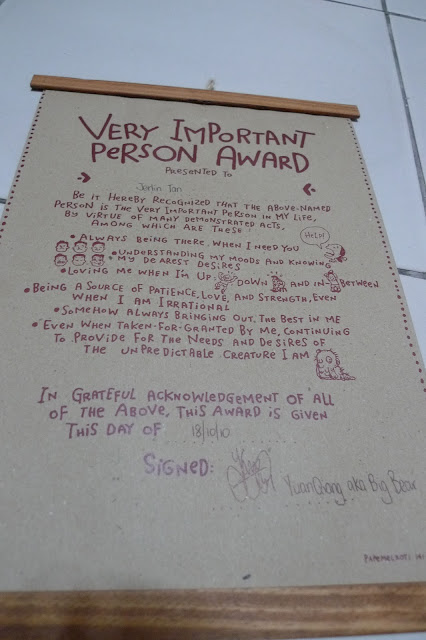 VERY IMPORTANT
PERSON AWARD
PRESENTED TO
Jenlin Tan
BE IT HEREBY RECOGNIZED THAT THE ABOVE-NAMED
PERSON IS THE VERY IMPORTANT PERSON IN MY LIFE,
BY VIRTUE OF MANY DEMONSTRATED ACTS,
AMONG WHICH ARE THESE:
• ALWAYS BEING THERE WHEN I NEED YOU
Hello!
• UNDERSTANDING MY MOODS AND KNOWING
• MY DEAREST DESIRES
• LOVING ME WHEN I'M UP, DOWN AND IN-BETWEEN
• BEING A SOURCE OF PATIENCE, LOVE, AND STRENGTH, EVEN
WHEN I AM IRRATIONAL
• SOMEHOW ALWAYS BRINGING OUT THE BEST IN ME
• EVEN WHEN TAKEN-FOR-GRANTED BY ME, CONTINUING
TO PROVIDE FOR THE NEEDS AND DESIRES OF
THE UNPREDICTABLE CREATURE I AM
IN GRATEFUL ACKNOWLEDGEMENT OF ALL
OF THE ABOVE, THIS AWARD IS GIVEN
THIS DAY OF 18/10/10
SIGNED:
YuanChang aka Big Bear